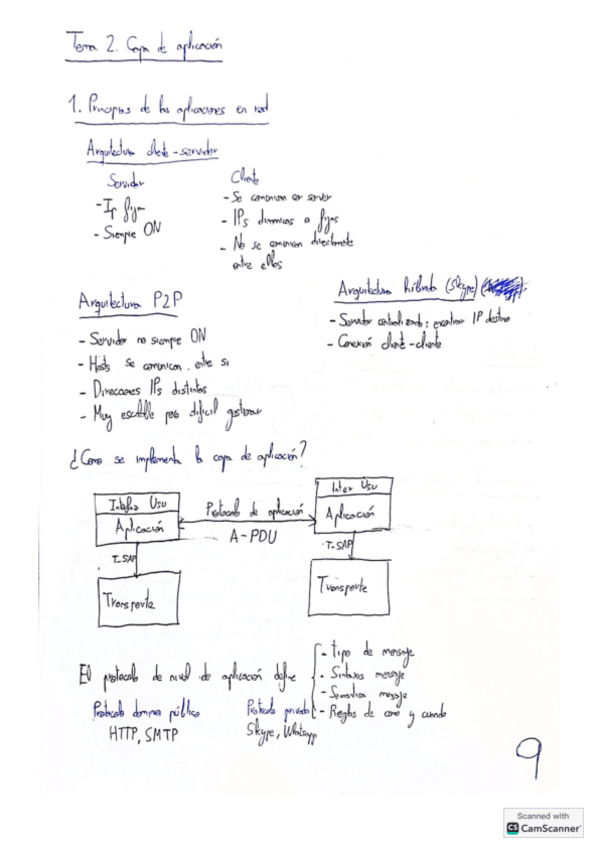 Tema 2. Capa de aplicación
1. Principios de las aplicaciones en red
Arquitectura cliente-servidor
Servidor
- Ip fijas
- Siempre ON
Cliente
- Se comunican con server
- IPs dinámicas o fijas
- No se comunican directamente
entre ellos
Arquitectura P2P
- Servidor no siempre ON
- Hosts se comunican entre si
- Direcciones IPs distintas
- Muy escalable pero dificil gestionar
Arquitectura híbrida (Skype)
- Servidor centralizado: encontrar IP destino
- Conexión cliente-cliente
¿Como se implementa la capa de aplicación?
Interfaz Usu
Aplicación
T-SAP
Transporte
Protocolo de aplicación
A-PDU
Inter Usu
Aplicación
T-SAP
Transporte
El protocolo de nivel de aplicación define
- Tipo de mensaje
- Sintaxis mensaje
- Semantica mensaje
- Reglas de como y cuando
Protocolo dominio público
HTTP, SMTP
Protocolo privado
Skype, Whatsapp
9
Scanned with
CS CamScanner